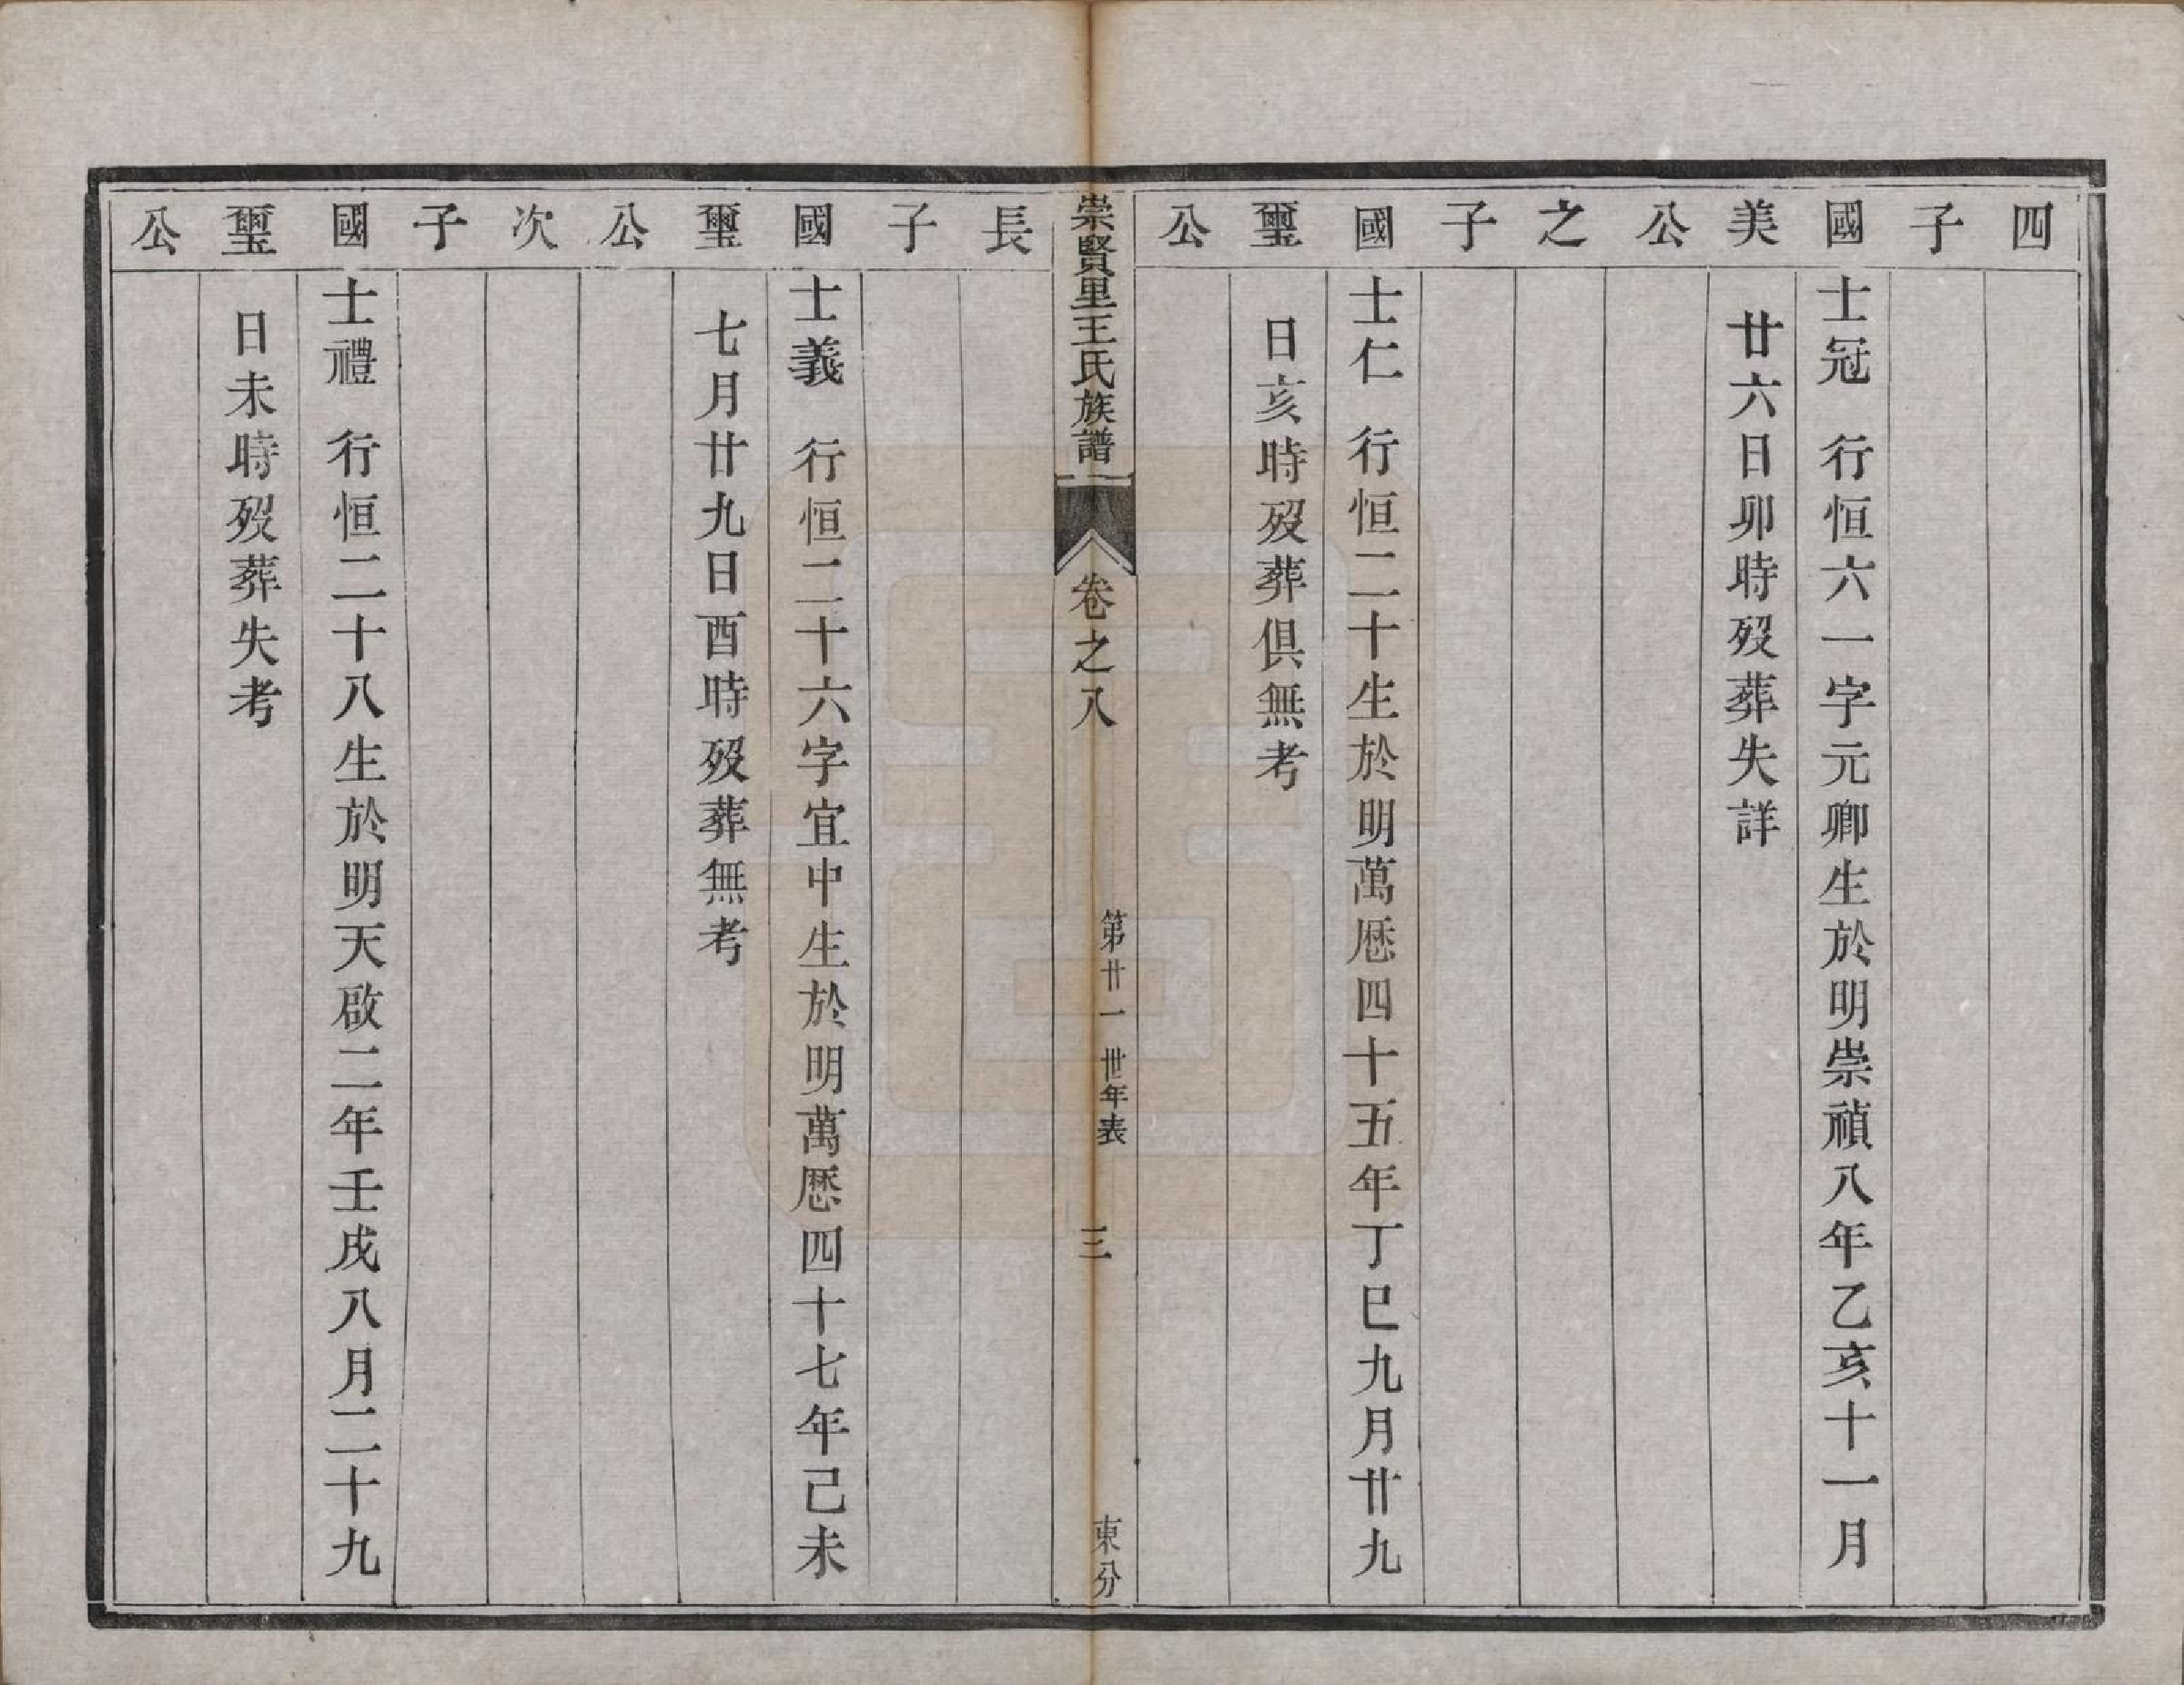 四子國美公之子國璽公
士冠　行恒六一字元卿生於明崇禎八年乙亥十一月
廿六日卯時歿葬失詳
士仁　行恒二十生於明萬厯四十五年丁巳九月廿九
日亥時歿葬俱無考
崇賢里王氏族譜　卷之八　第廿一世年表　三　東分
長子國璽公次子國璽公
士義　行恒二十六字宜中生於明萬厯四十七年己未
七月廿九日酉時歿葬無考
士禮　行恒二十八生於明天啟二年壬戌八月二十九
日未時歿葬失考